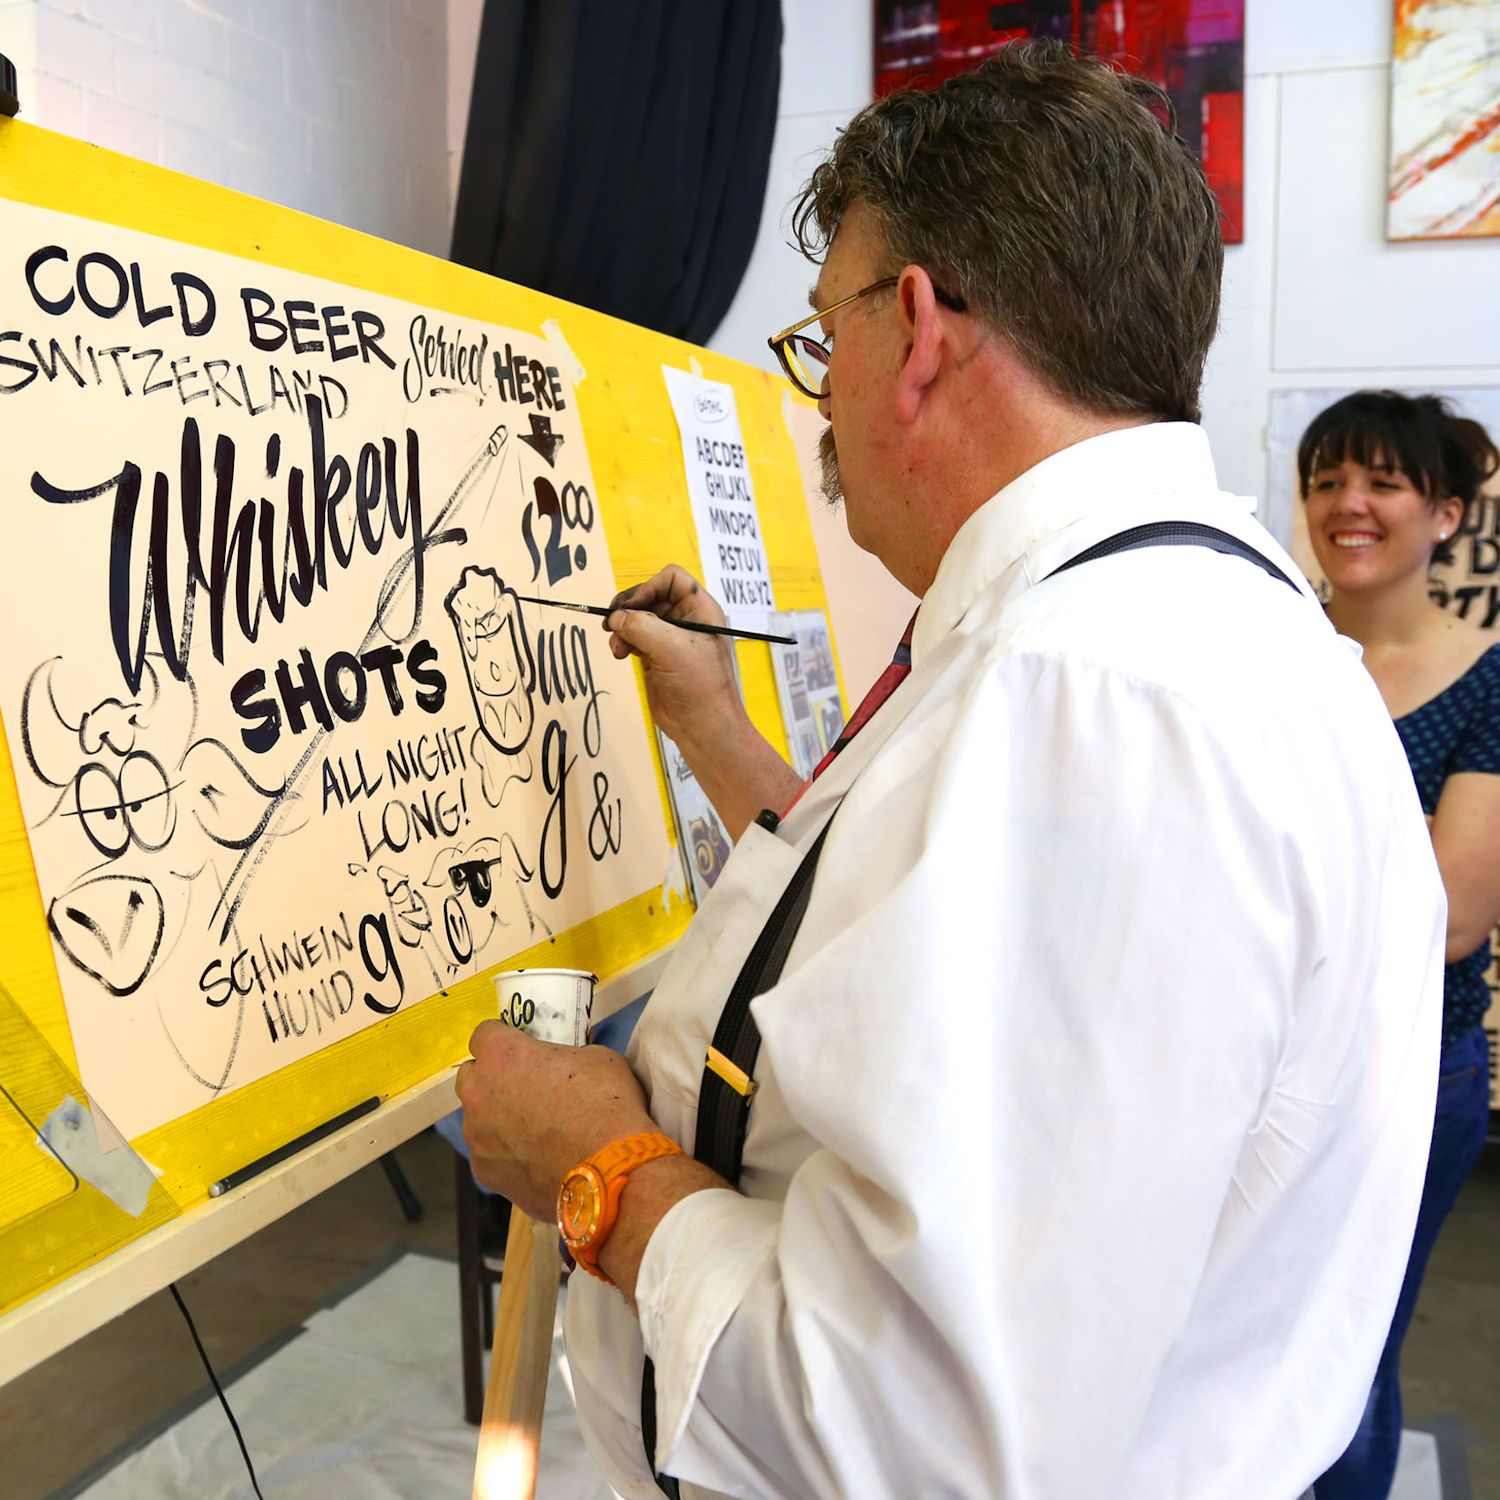 COLD BEER
Served HERE
SWITZERLAND
Whiskey
$2.00
SHOTS
ALL NIGHT
LONG!
ug
g
g &
SCHWEIN
HUND
g
GOTHIC
ABCDEF
GHIJKL
MNOPQ
RSTUV
WX&YZ
Co